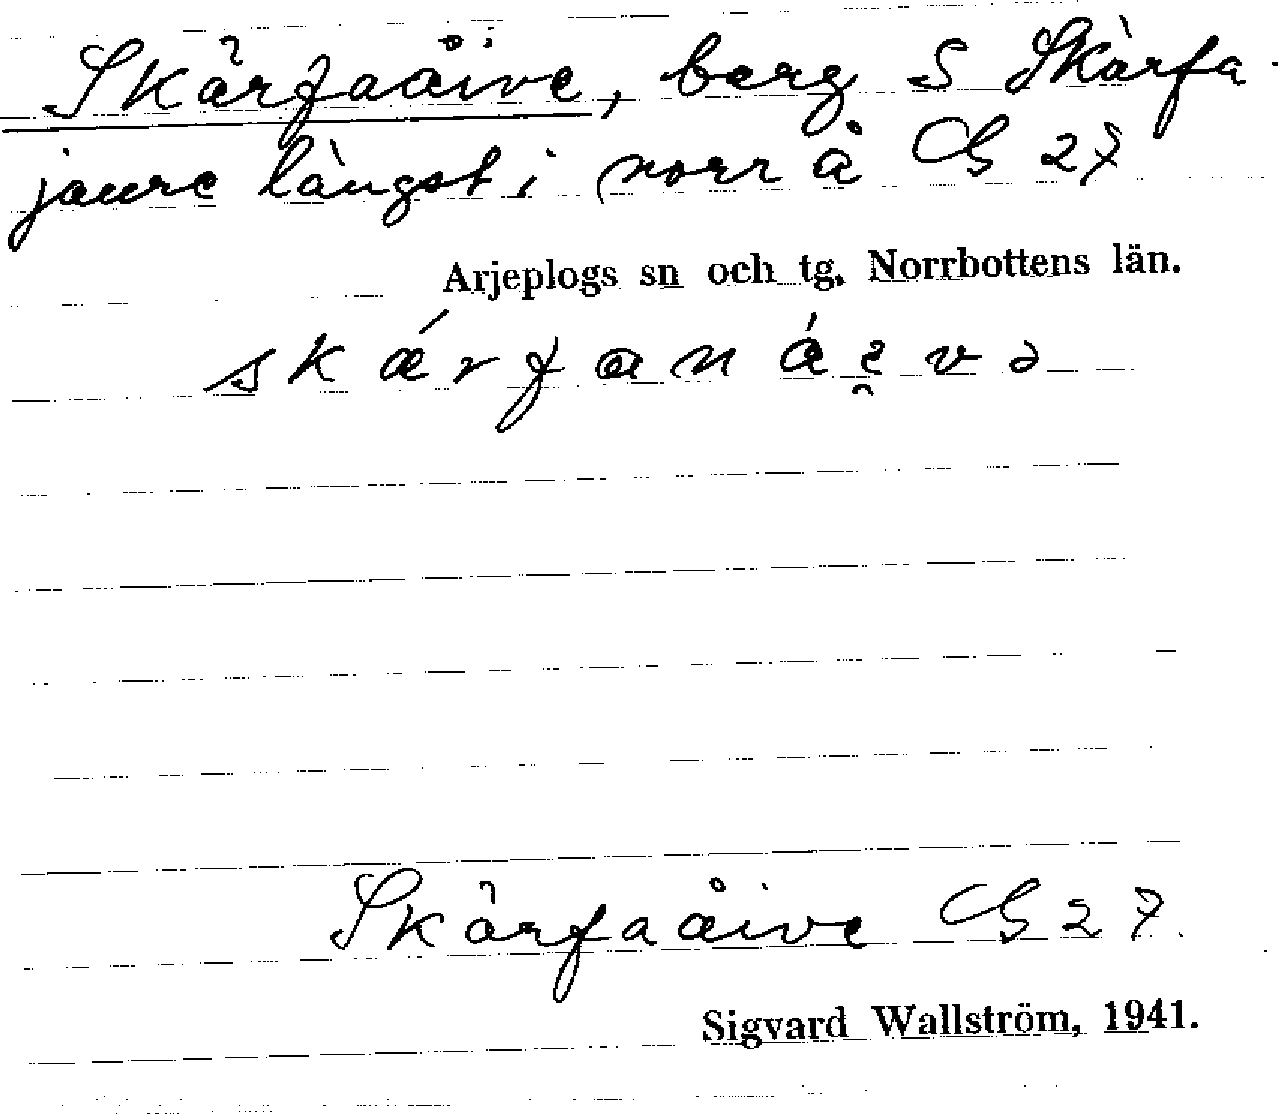 Skärfaåive, berg S Skärfa-
jaure längst i norr å G 27
Arjeplogs sn och tg, Norrbottens län.
Skärfaåive G 27.
Sigvard Wallström, 1941.